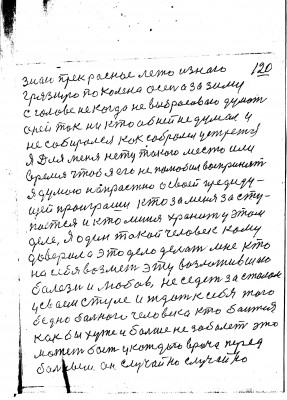 120
знаи прекрасное лето из наго
грязную по колена осен а за зиму
с голове некогда не выбрасоваю думат
оней так ни кто об ней не думал и
не собирался как собрался устретет
я Для меня нету такого место или
время чтоб я его не полюбил воспринят
я думаю напрасно о своей предиду-
щей проиграши кто за меня засту-
пится и кто миня хранит у этом
деле, я один такой человек кому
доверила это дело делат мне кто
на себя возмет эту возложившаю
балези и любов, не седет за столом
у своем стуле и ждат к себя того
бедно балного человика кто баится
как бы хуже и болше не заболет это
можит быт у каждого врача перед
балным он случайно случайно